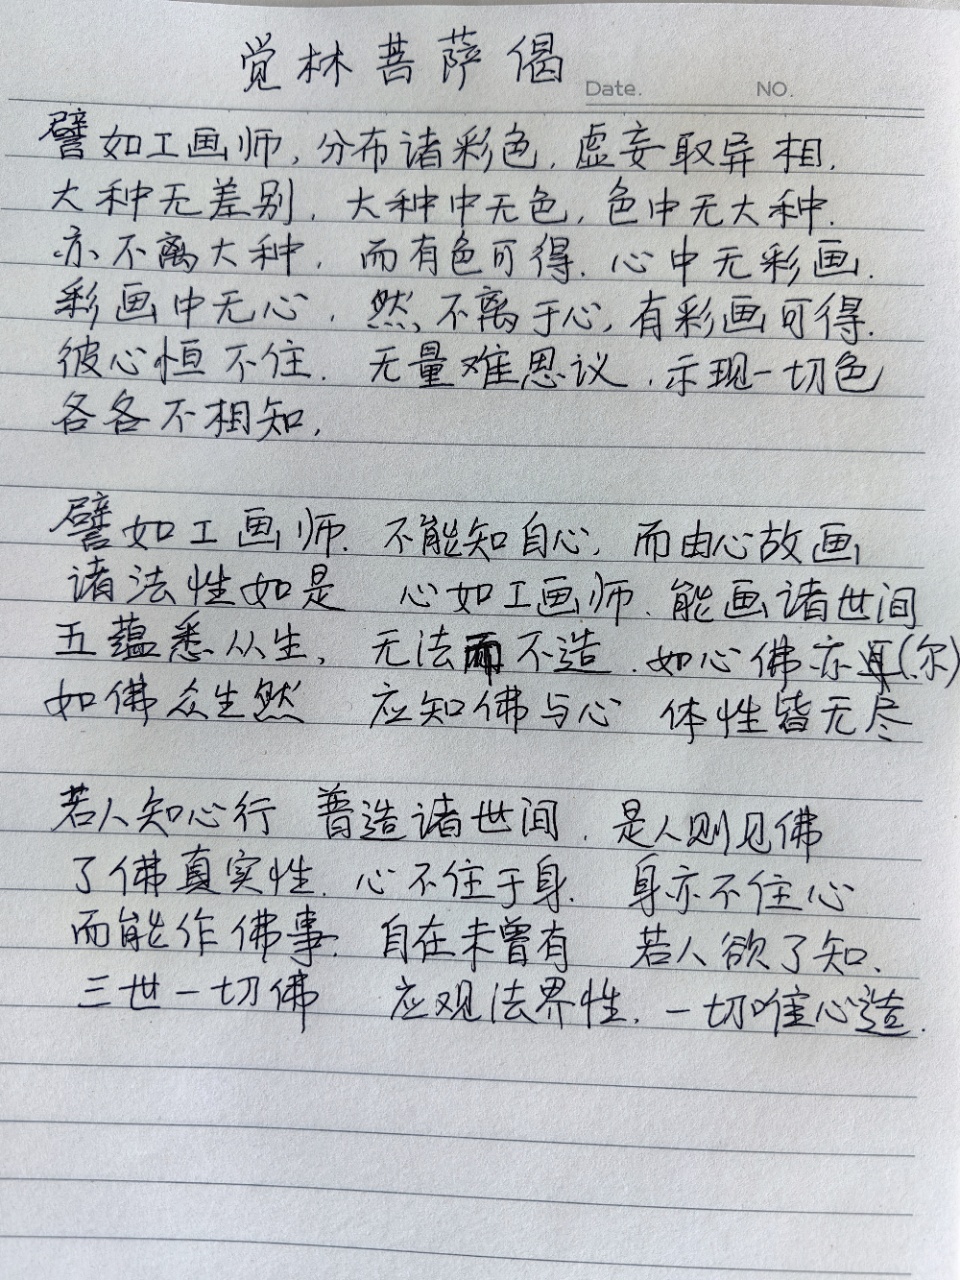 觉林菩萨偈
Date. NO.
譬如工画师,分布诸彩色,虚妄取异相.
大种无差别.大种中无色,色中无大种.
亦不离大种.而有色可得.心中无彩画.
彩画中无心.然不离于心,有彩画可得.
彼心恒不住.无量难思议.示现一切色
各各不相知.
譬如工画师.不能知自心,而由心故画
诸法性如是 心如工画师.能画诸世间
五蕴悉从生,无法而不造.如心佛亦耳(尔)
如佛众生然 应知佛与心 体性皆无尽
若人知心行 普造诸世间.是人则见佛
了佛真实性.心不住于身.身亦不住心
而能作佛事.自在未曾有 若人欲了知、
三世一切佛 应观法界性.一切唯心造.